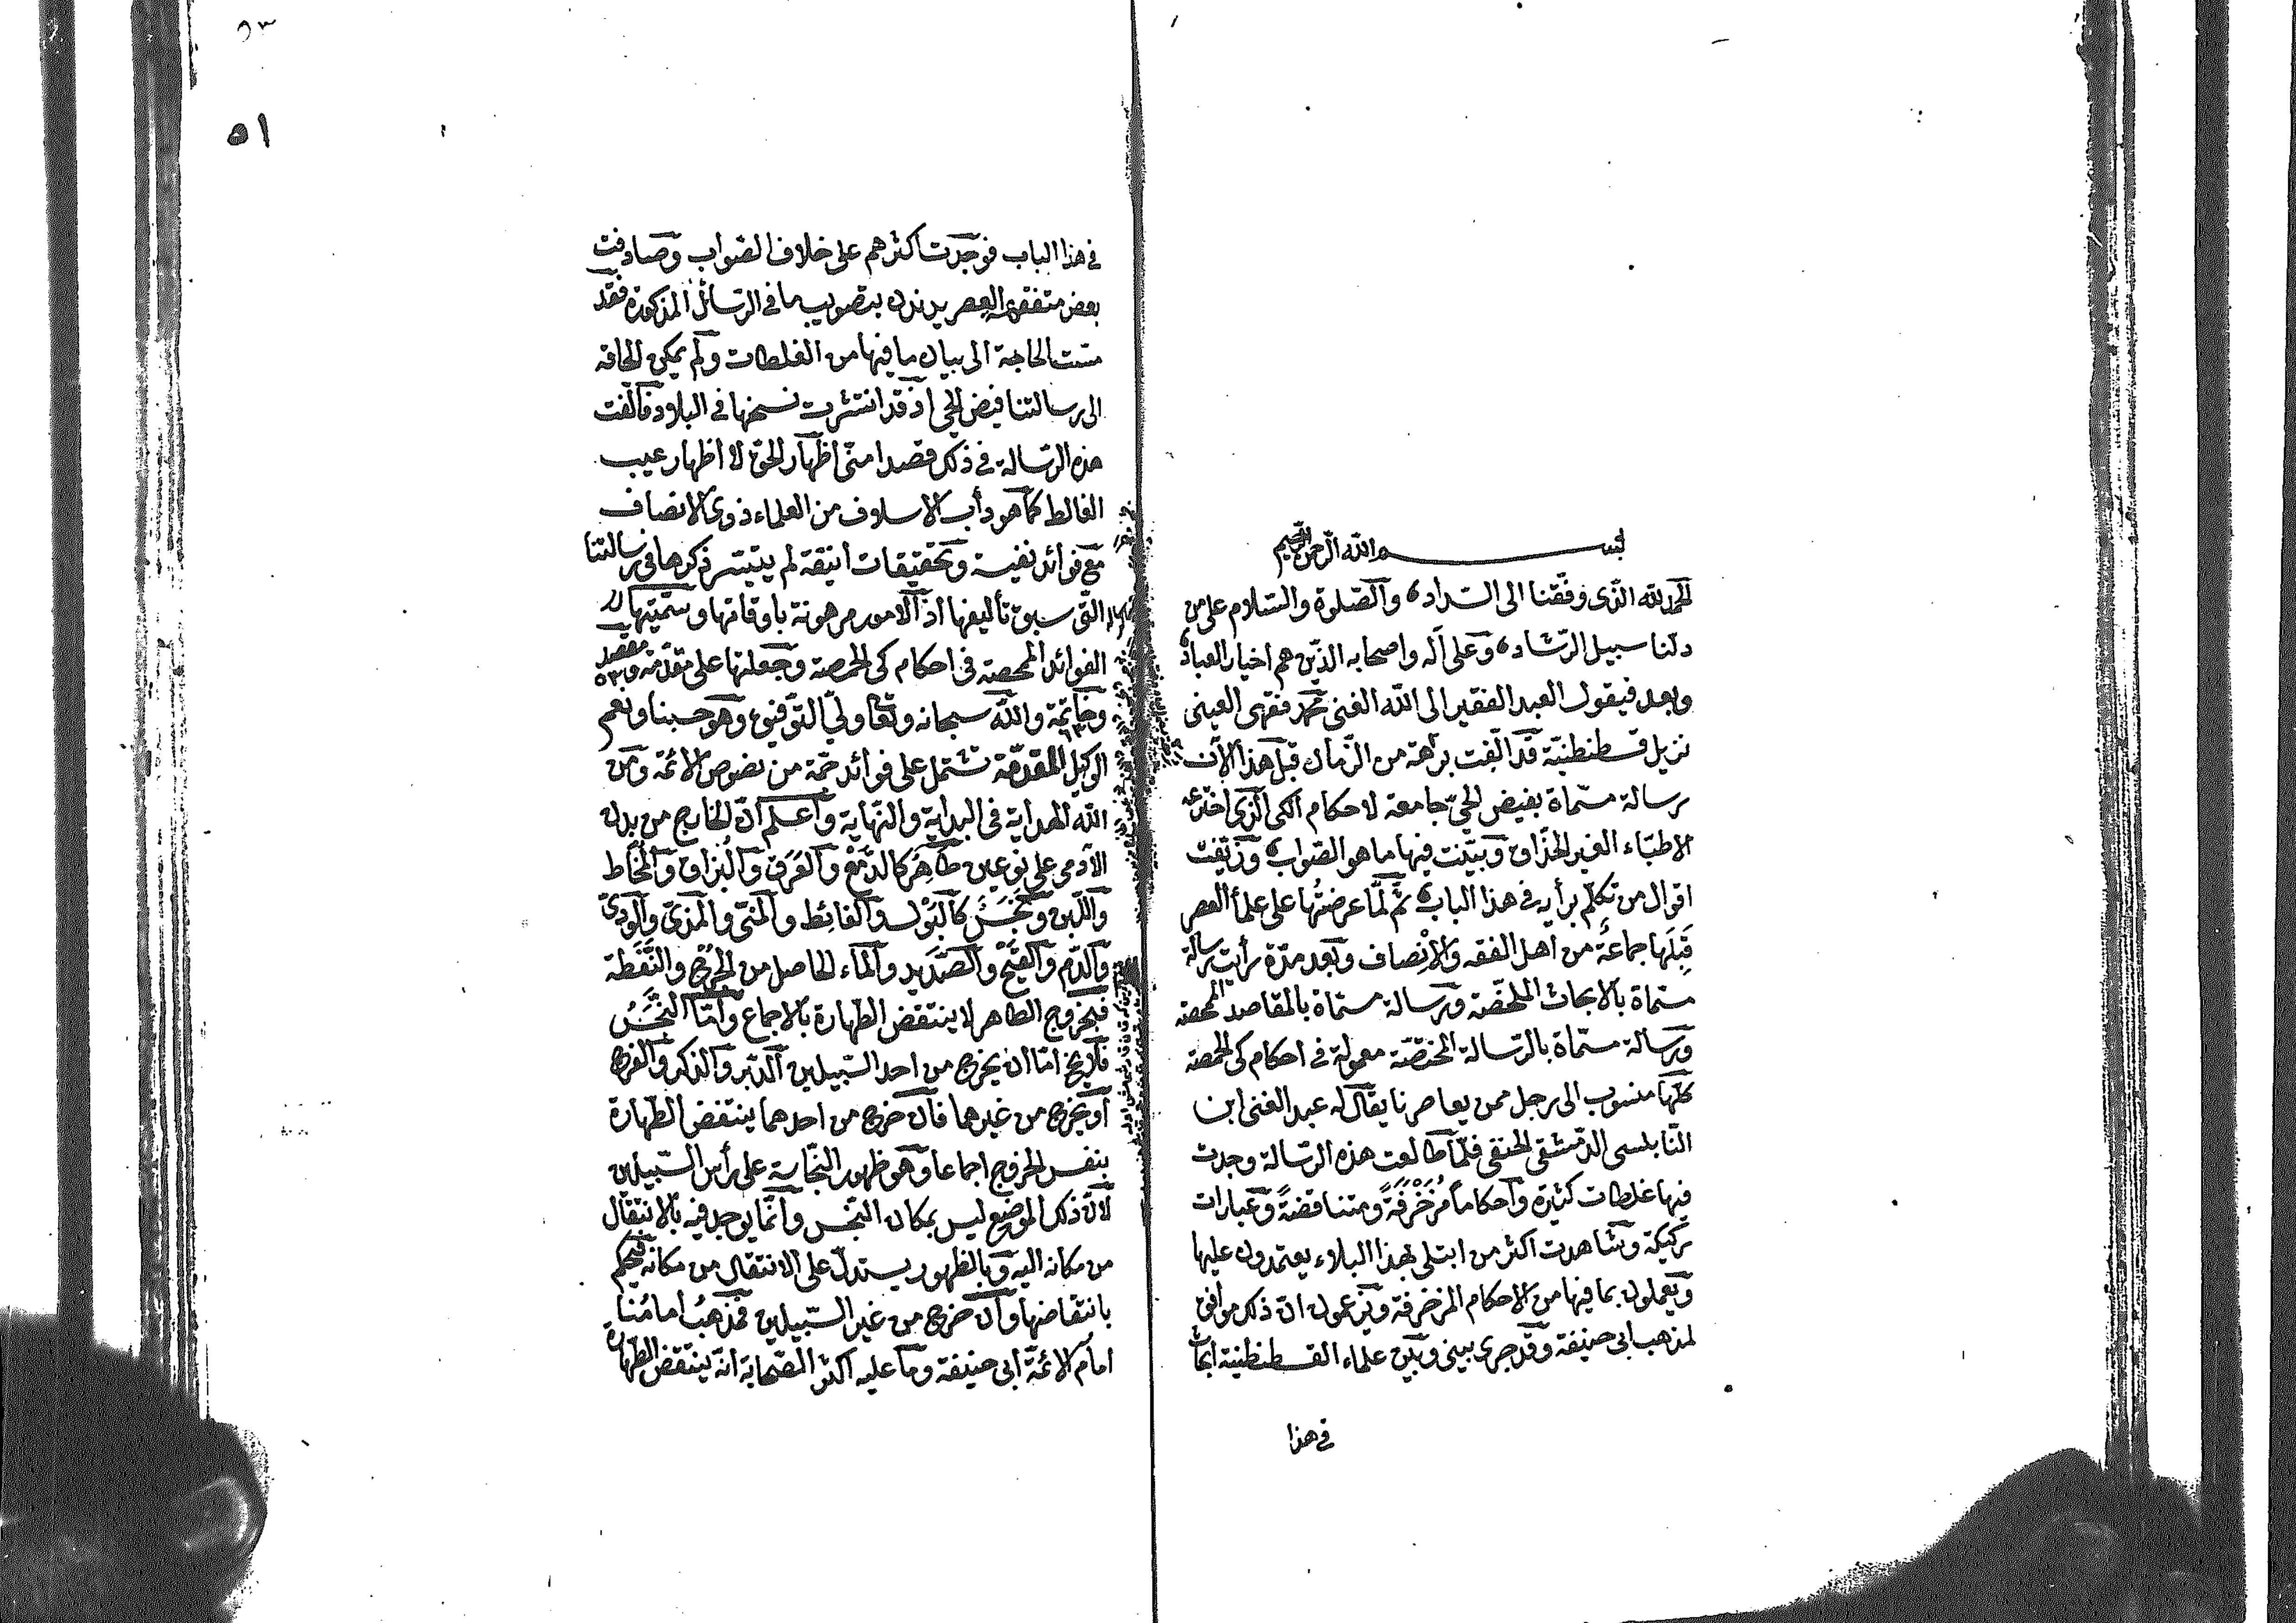 بسم الله الرحمن الرحيم
الحمد لله الذى وفقنا الى السداد، والصلوة والسلام على من
دلنا سبيل الرشاد، وعلى آله واصحابه الذين هم اخيار العباد،
وبعد فيقول العبد الفقير الى الله الغنى محمد فقهى العينى
نزيل قسطنطنيّة قد الّفت برهة من الزمان قبل هذا الآن
رسالة مسمّاة بفيض الحىّ جامعة لاحكام الكى الذى اخترعه
الاطبّاء الغير الحذّاق وبيّنت فيها ما هو الصواب، وزيّفت
اقوال من تكلّم برأيه فى هذا الباب، ثمّ لمّا عرضتُها على علمأ العصر
قَبِلَها جماعةٌ من اهل الفقه والاِنْصاف وبعد مدّة رأيت رسالة
مسمّاة بالابحاث الملخّصة ورسالة مسمّاة بالمقاصد الممحصة
ورسالة مسمّاة بالرّسالة المختصّة معمولة فى احكام كى الحمصة
كلّها منسوب الى رجل ممن يعاصرنا يقال له عبد الغنى ابن
النّابلسى الدّمشقى الحنفى فلمّا طالعت هذه الرّسالة وجدت
فيها غلطات كثيرة واحكاماً مُزَخْرَفَةً ومتناقضةً وعبارات
ركيكة وشاهدت اكثر من ابتلى بهذا البلاء يعتمدون عليها
ويعملون بما فيها من الاحكام المزخرفة ويزعمون انّ ذلك موافق
لمذهب ابى حنيفة وقد جرى بينى وبين علماء القسطنطنية ابحاث
فى هذا
٥٣
٥١
فى هذا الباب فوجدت اكثرهم على خلاف الصّواب وصادفت
بعض متفقهة العصر يدندن بتصويب ما فى الرّسائل المذكورة فقد
مسّت الحاجة الى بيان ما فيها من الغلطات ولم يمكن الحاقه
الى رسالتنا فيض الحى اذ قد انتشرت نسخها فى البلاد فألّفت
هذه الرّسالة فى ذلك قصدا منّى اظهار الحق لا اظهار عيب
الغالط كما هو دأب الاسلاف من العلماء ذوى الانصاف
مع فوائد نفيسة وتحقيقات انيقة لم يتيسّر ذكرها فى رسالتنا
التى سبق تأليفها اذ الامور مرهونة باوقاتها وسمّيتها
الفوائد الممحصة فى احكام كى الحمصة وجعلتها على مقدّمة ومقصد
وخاتمة والله سبحانه وتعالى ولىّ التوفيق وهو حسبنا ونعم
الوكيل المقدّمة تشتمل على فوائد جمّة من نصوص الائمّة ومن
الله الهداية فى البداية والنّهاية واعلم انّ الخارج من بدن
الآدمى على نوعين طاهر كالدّمع والعَرَق والبُزاق والمُخَاط
واللّبن ونَجَس كالبَوْل والغائط والمنىّ والمذىّ والودىّ
والدّم والقَيْح والصّديد والماء الحاصل من الجرْح والنَّفَطة
فبخروج الطاهر لا ينتقض الطّهارة بالاجماع وامّا النّجَسُ
فلا يخ امّا ان يخرج من احد السّبيلين الدّبر والذكر والفرج
او يخرج من غيرهما فان خرج من احدهما ينتقض الطّهارة
بنفس الخروج اجماعا وهو ظهور النّجاسة على رأس السّبيلين
لانّ ذلك الموضع ليس بمكان النّجس وانّما يوجد فيه بالانتقال
من مكانه اليه وبالظهور يستدلّ على الانتقال من مكانه فيحكم
بانتقاضها وان خرج من غير السّبيلين فمذهبُ امامُنا
امام الائمّة ابى حنيفة وما عليه اكثر الصّحابة انّه ينتقض الطهارة